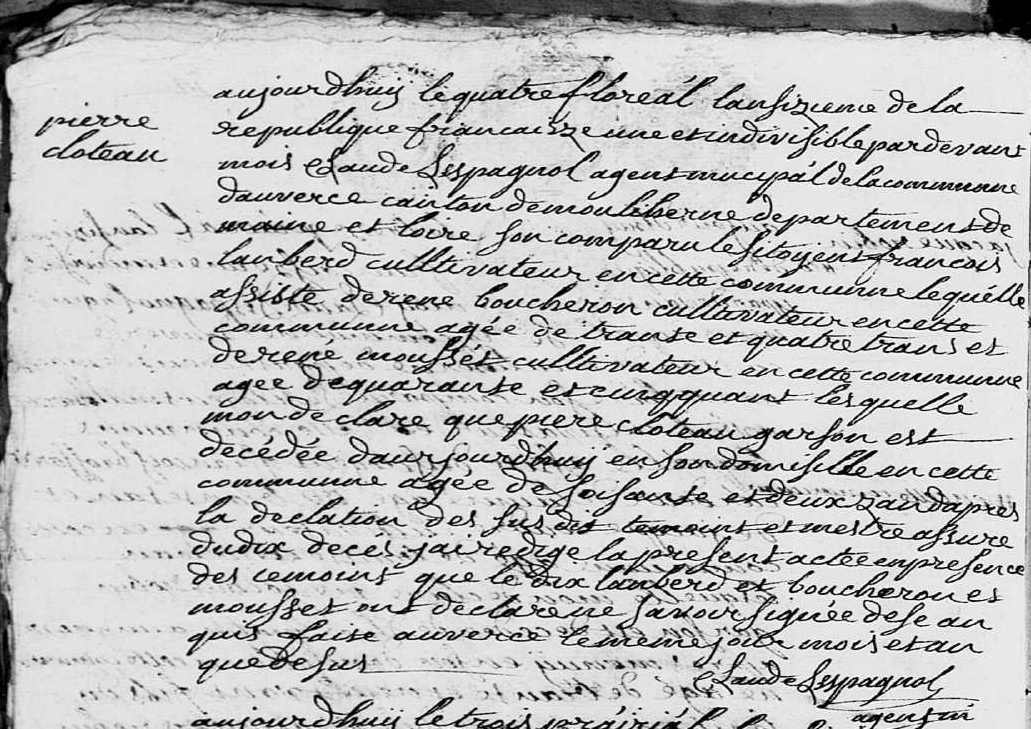 pierre
cloteau
aujourdhuij le quatre floreál lansizieme de la
republique francaizze une et indivisible pardevant
mois Claude Lespagnol agent mucipál de la communne
dauverce canton demouliberne departement de
maine et loire son comparu le sitoyent francois
lanberd cultivateur en cette communne lequélle
assisté derené boucheron cultivateur en cette
communne agée de trante et quatre trans et
derené moussét cultivateur en cette communne
agee dequarante et cinqquant les quelle
mon de clare que piere cloteau garson est
decédée daurjourdhuij en son domisille en cette
communne agée de soisante et deux zandapres
la declation des sus dit temoint et mestre assure
dudix decés jai redige la present actée enpresence
des temoint que le dix lanberd et boucheron et
mousset ont déclaré ne savoir signée dese an
quis faise auverce le meme jour mois et an
que desus
Claude Lespagnol
agent m
aujourdhuij le trois prairiál